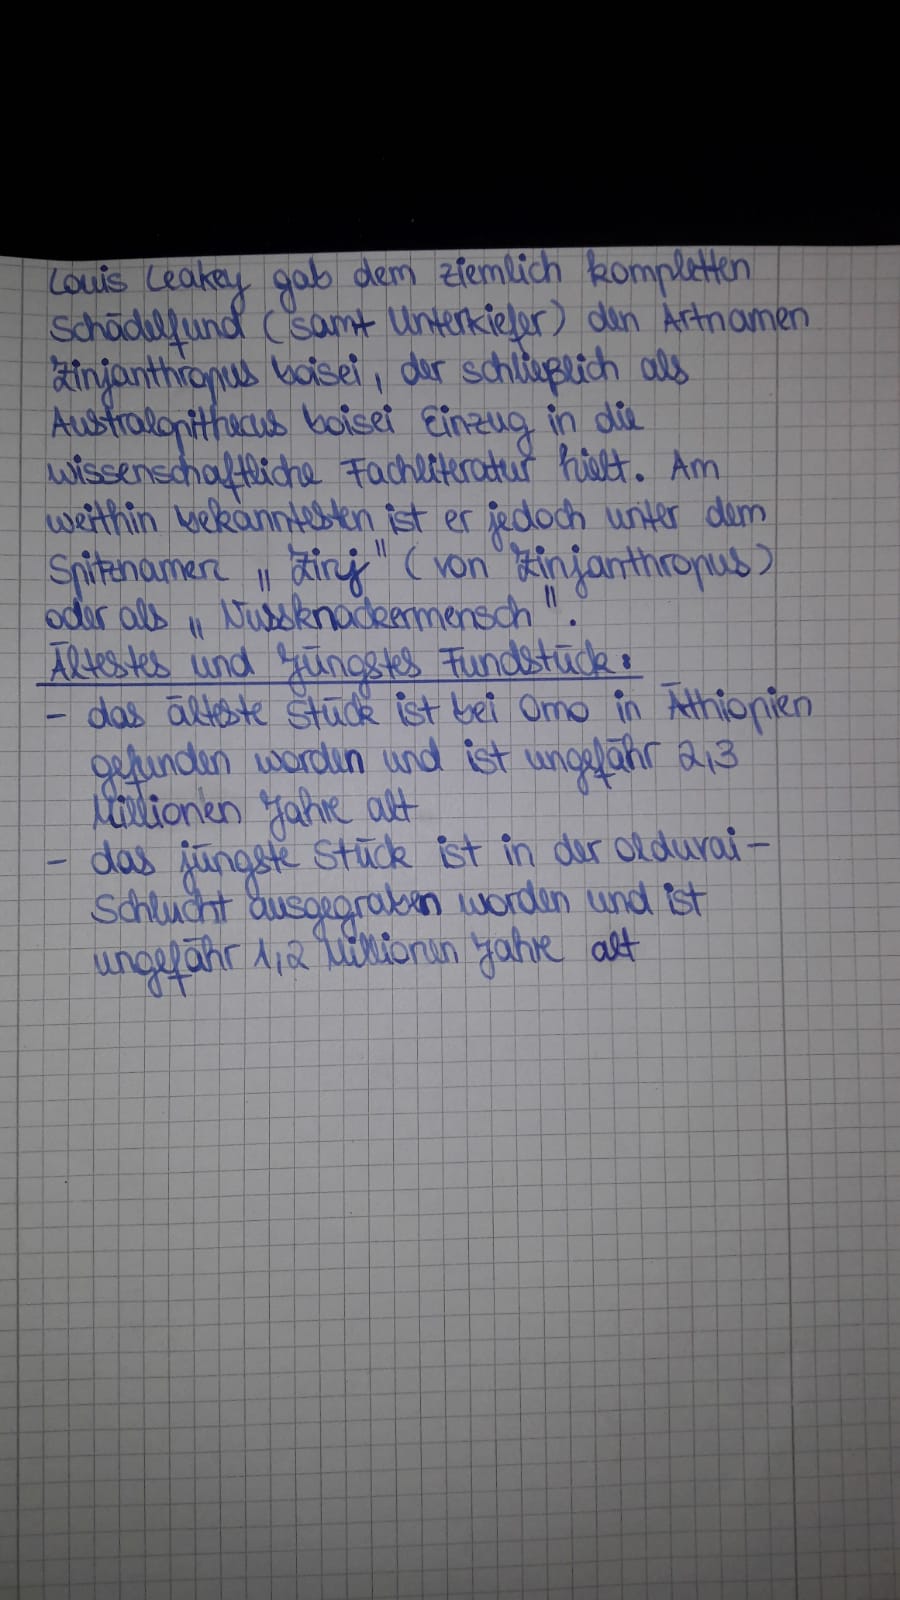 Louis Leakey gab dem ziemlich kompletten
Schädelfund (samt Unterkiefer) den Artnamen
Zinjanthropus boisei, der schließlich als
Australopithecus boisei Einzug in die
wissenschaftliche Fachliteratur hielt. Am
weithin bekanntesten ist er jedoch unter dem
Spitznamen „Zinj" (von Zinjanthropus)
oder als „Nussknackermensch".
Ältestes und Jüngstes Fundstück:
- das älteste Stück ist bei Omo in Äthiopien
gefunden worden und ist ungefähr 2,3
Millionen Jahre alt
- das jüngste Stück ist in der Olduvai-
Schlucht ausgegraben worden und ist
ungefähr 1,2 Millionen Jahre alt